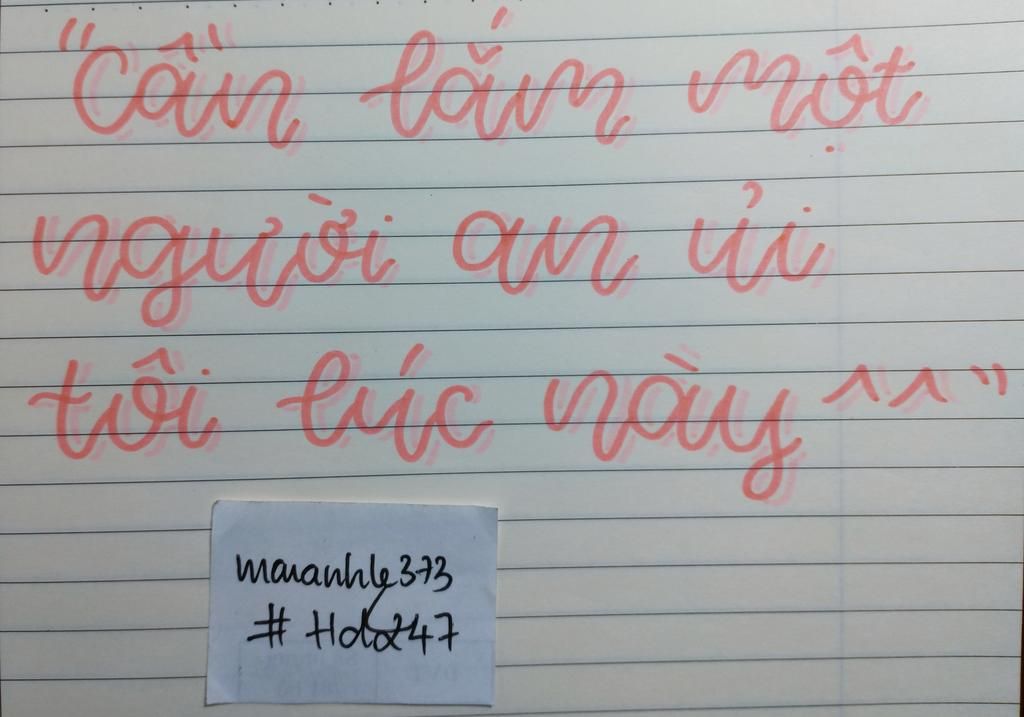 "Cần lắm một
người an ủi
tôi lúc này ^^"
maianhle373
# Hda247